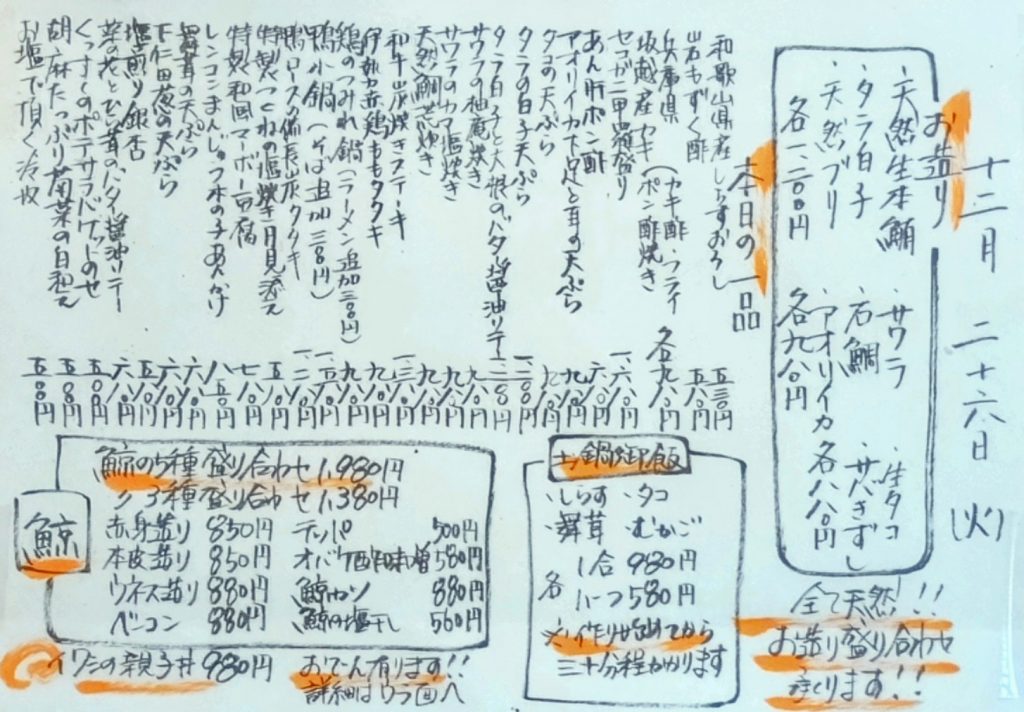 十二月 二十六日 (火)
お造り
・天然生本鮪
・タラ白子
・天然ブリ
各一、二〇〇円
・サワラ
・石鯛
・アオリイカ
各九八〇円
・生タコ
・サバきずし
各八八〇円
全て天然!!
お造り盛り合わせ
承ります!!
本日の一品
和歌山県産しらすおろし 五三〇円
岩もずく酢 五八〇円
兵庫県
坂越産カキ(カキ酢・フライ
ポン酢焼き 各九八〇円
セコガニ甲羅盛り 一、六八〇円
あん肝ポン酢
アオリイカ下足と耳の天ぷら
タコの天ぷら
タラの白子天ぷら
タラ白子と大根のバター醤油ソテー
サワラの柚庵焼き
サワラのカマ塩焼き
天然鯛荒炊き
和牛炭焼きステーキ
伊勢赤鶏ももタタキ
鶏のつみれ鍋(ラーメン追加三〇〇円)
鴨小鍋(そば追加三〇八円)
鴨ロース備長炭タタキ
特製つくねの塩焼き月見添え
特製和風マーボー豆腐
レンコンまんじゅう木の子あんかけ
舞茸の天ぷら
下仁田葱の天ぷら
塩煎り銀杏
菜の花とひら茸のバター醤油ソテー
くっすくのポテサラバゲットのせ
胡麻たっぷり菊菜の白和え
お塩で頂く冷奴
鯨
鯨の5種盛り合わせ 1,980円
〃 3種盛り合わせ 1,380円
赤身造り 850円
本皮造り 850円
ウネス造り 880円
ベーコン 880円
テッパ 500円
オバケ酢味噌 580円
鯨カツ 880円
鯨の塩干し 560円
イワシの親子丼 980円
おでん有ります!!
詳細はウラ面へ
土鍋御飯
・しらす ・タコ
・舞茸 ・むかご
各 1合 980円
ハーフ 580円
※作り始めてから
三十分程かかります